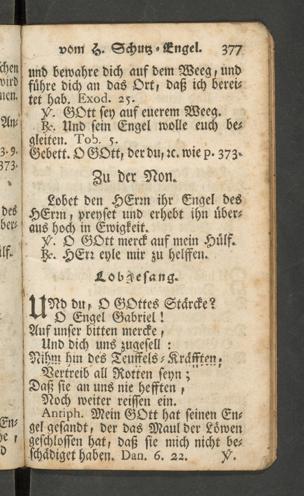 vom H. Schutz-Engel. 377
und bewahre dich auf dem Weeg, und
führe dich an das Ort, daß ich berei-
tet hab. Exod. 25.
℣. GOtt sey auf euerem Weeg.
℟. Und sein Engel wolle euch be-
gleiten. Tob. 5.
Gebett. O GOtt, der du, ꝛc. wie p. 373.
Zu der Non.
Lobet den HErrn ihr Engel des
HErrn, preyset und erhebt ihn über-
aus hoch in Ewigkeit.
℣. O GOtt merck auf mein Hülf.
℟. HErr eyle mir zu helffen.
Lobgesang.
UNd du, O GOttes Stärcke!
O Engel Gabriel!
Auf unser bitten mercke,
Und dich uns zugesell:
Nihm hin des Teuffels-Kräfften,
Vertreib all Rotten seyn;
Daß sie an uns nie hefften,
Noch weiter reissen ein.
Antiph. Mein GOtt hat seinen En-
gel gesandt, der das Maul der Löwen
geschlossen hat, daß sie mich nicht be-
schädiget haben. Dan. 6. 22. ℣.